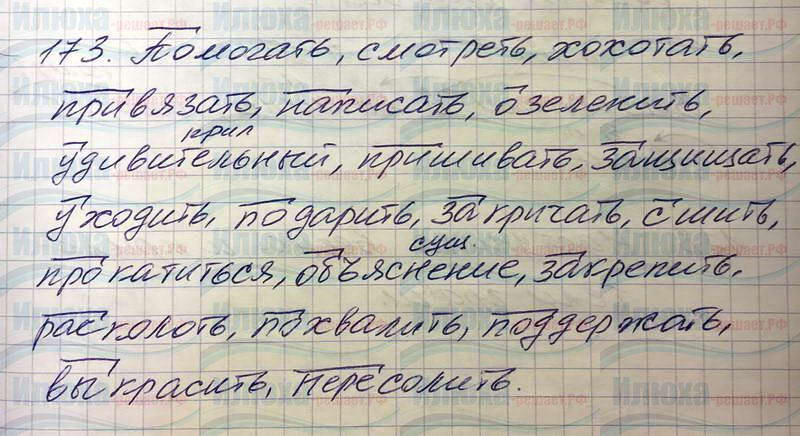 173. Помогать, смотреть, хохотать,
привязать, написать, озеленить,
прил
удивительный, пришивать, защищать,
уходить, подарить, закричать, сшить,
сущ.
прокатиться, объяснение, закрепить,
расколоть, похвалить, поддержать,
выкрасить, пересолить.
Илюха
-решает.РФ